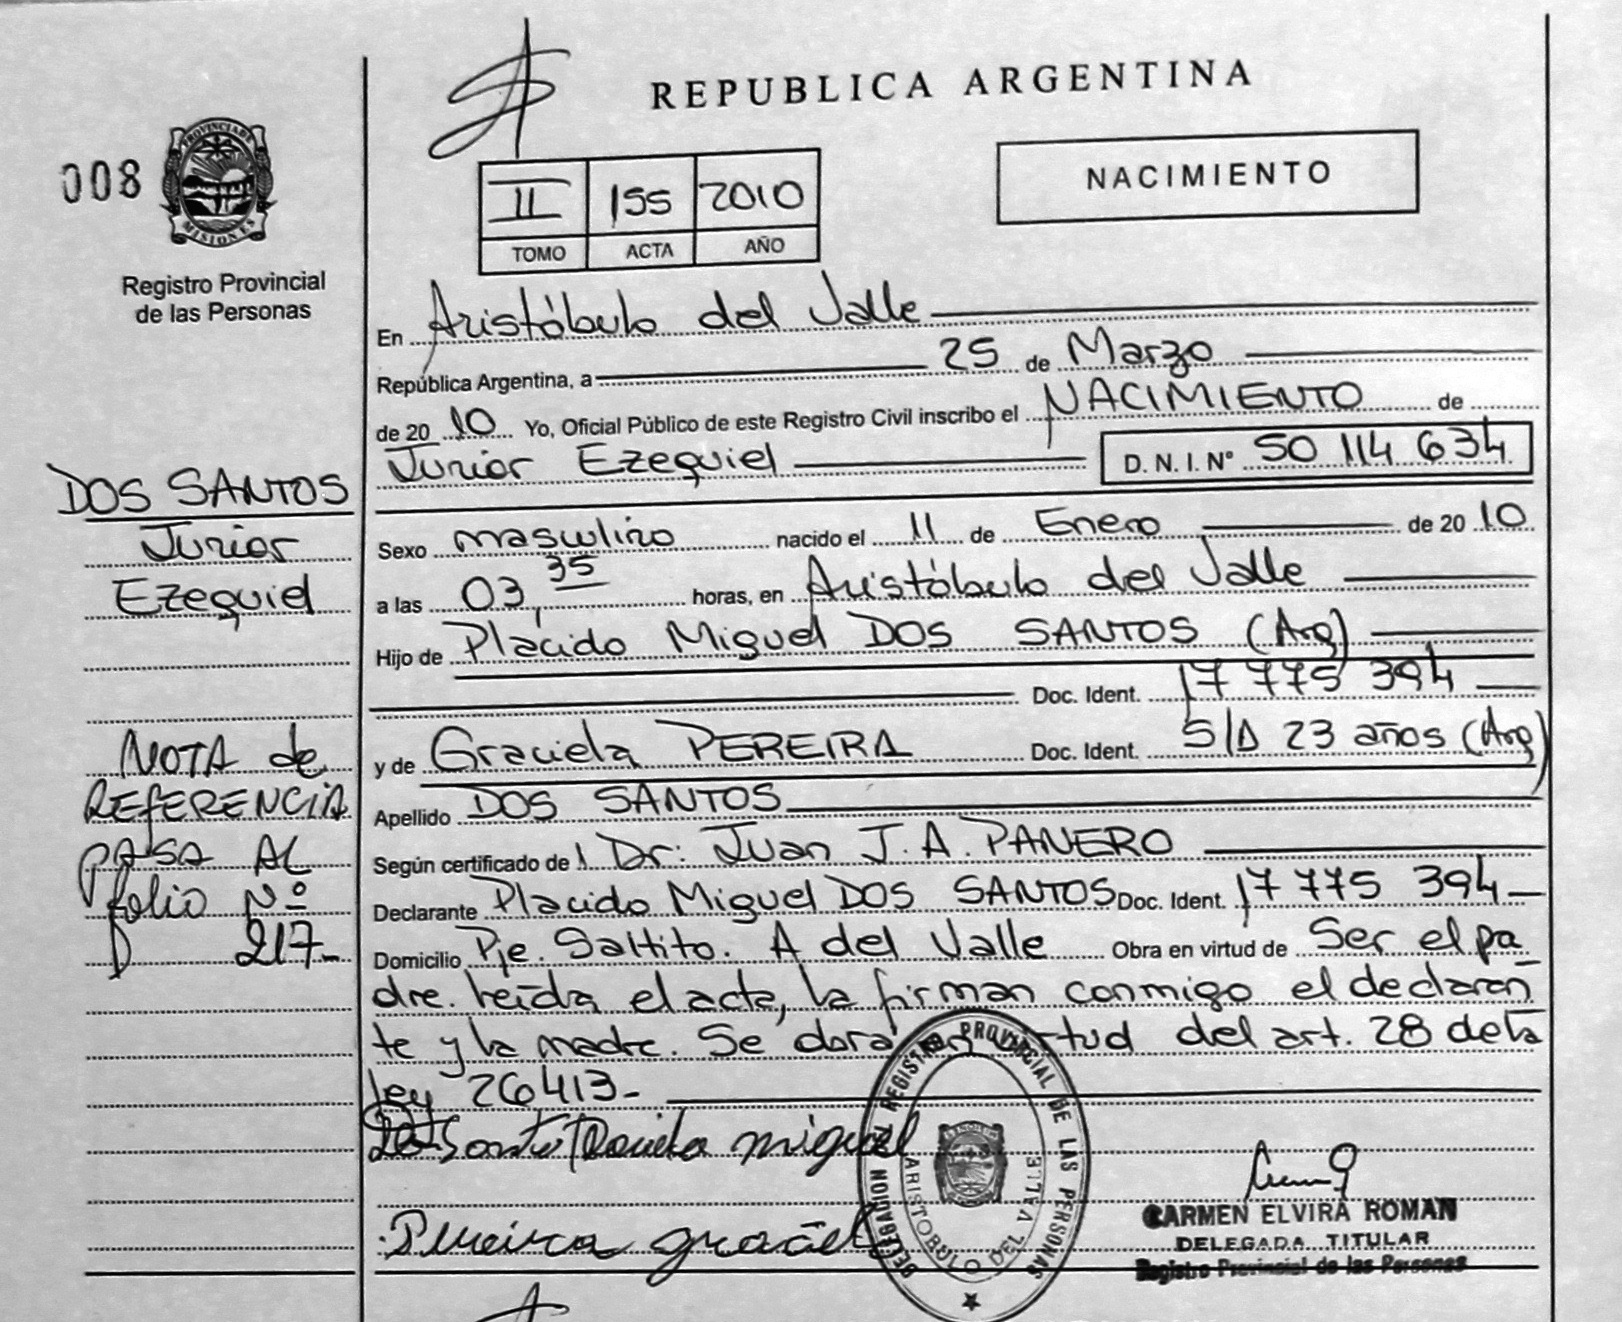 REPUBLICA ARGENTINA
008
PROVINCIA DE
MISIONES
Registro Provincial
de las Personas
II 155 2010
TOMO ACTA AÑO
NACIMIENTO
En Aristóbulo del Valle
República Argentina, a 25 de Marzo
de 20 10 Yo, Oficial Público de este Registro Civil inscribo el NACIMIENTO de
Junior Ezequiel D.N.I. Nº 50 114 634
DOS SANTOS
Junior
Ezequiel
Sexo masculino nacido el 11 de Enero de 20 10
a las 03,35 horas, en Aristóbulo del Valle
Hijo de Placido Miguel DOS SANTOS (Arg)
Doc. Ident. 17 775 394
y de Graciela PEREIRA Doc. Ident. S/D 23 años (Arg)
Apellido DOS SANTOS
Según certificado de Dr: Juan J. A. PANERO
Declarante Placido Miguel DOS SANTOS Doc. Ident. 17 775 394
Domicilio Pje. Saltito. A del Valle Obra en virtud de Ser el pa
dre. leída el acta, la firman conmigo el declaran
te y la madre. Se virtud del art. 28 de la
ley 26413-
NOTA de
REFERENCIA
PASA AL
folio Nº
217-
miguel
Pereira graciel
DELEGACION REGISTRO PROVINCIAL DE LAS PERSONAS
ARISTOBULO DEL VALLE
CARMEN ELVIRA ROMAN
DELEGADA TITULAR
Registro Provincial de las Personas